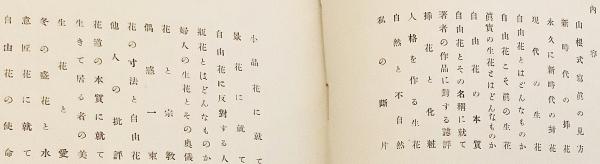 内容
山根式寫眞の見方
新時代の挿花
永久に新時代の挿花
現代の生花
自由花とはどんなものか
自由花こそ眞の生花
眞實の生花とはどんなものか
自由花の本質
自由花とその名稱に就て
著者の作品に對する誤評
挿花と化粧
人格を作る生花
自然と不自然
私の斷片
小品花に就て
景花に就て
自由花に反對する人
瓶花とはどんなものか
婦人の生花とその奥儀
花と宗敎
偶感一束
花の寸法と自由花
他人の批評
花道の本質に就て
生きて居る者の美
生花と愛
冬の盛花と水
意匠花に就て
自由花の使命